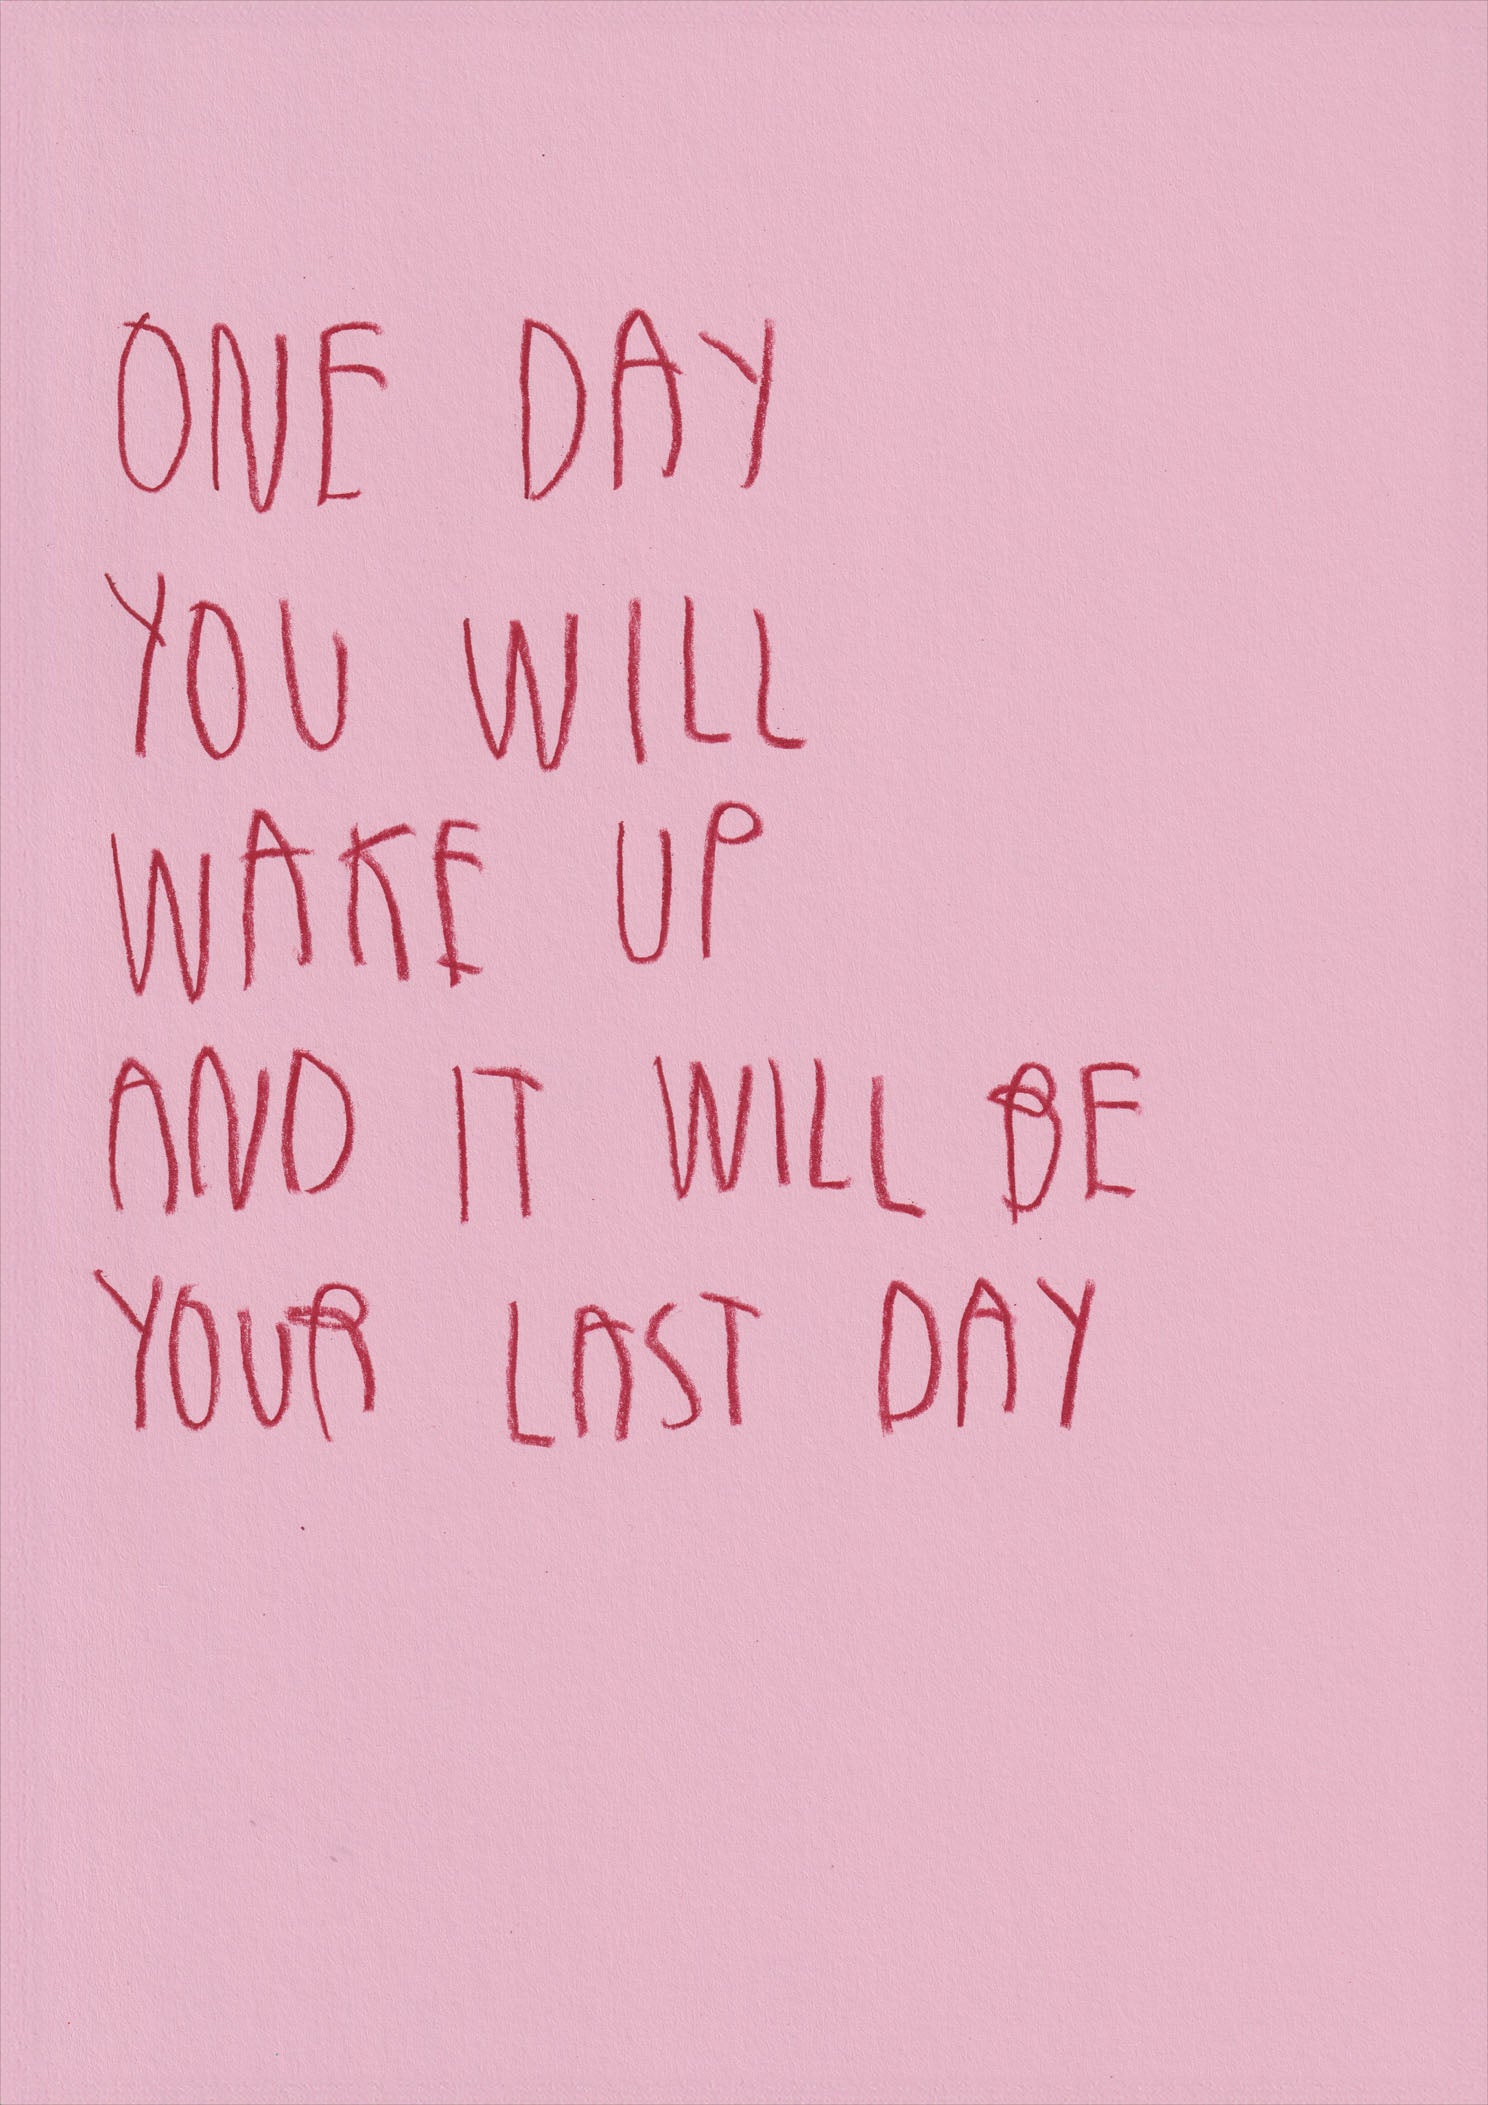 ONE DAY
YOU WILL
WAKE UP
AND IT WILL BE
YOUR LAST DAY